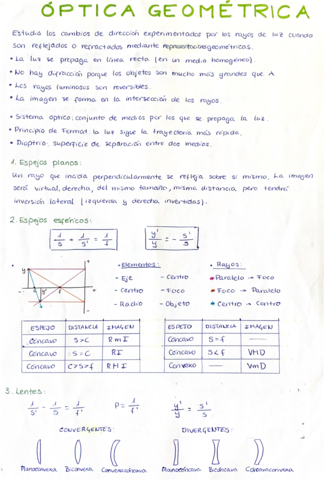 ÓPTICA GEOMÉTRICA
Estudia los cambios de dirección experimentados por los rayos de luz cuando
son reflejados o refractados mediante representaciones geométricas.
• La luz se propaga en línea recta (en un medio homogéneo).
• No hay difracción porque los objetos son mucho más grandes que λ.
• Los rayos luminosos son reversibles.
• La imagen se forma en la intersección de los rayos.
• Sistema óptico: conjunto de medios por los que se propaga la luz.
• Principio de Fermat la luz sigue la trayectoria más rápida.
• Dioptrio: superficie de separación entre dos medios.
1. Espejos planos:
Un rayo que incida perpendicularmente se refleja sobre sí mismo. La imagen
será virtual, derecha, del mismo tamaño, misma distancia pero tendrá
inversión lateral (izquierda y derecha invertidas).
2. Espejos esféricos:
1/s + 1/s' = 1/f
y'/y = - s'/s
• Elementos:
- Eje - Centro
- Centro - Foco
- Radio - Objeto
• Rayos:
Paralelo → Foco
Foco → Paralelo
Centro → Centro
ESPEJO DISTANCIA IMAGEN
Cóncavo S>C RmI
Cóncavo S=C RI
Cóncavo C>S>f RMI
ESPEJO DISTANCIA IMAGEN
Cóncavo S=f —
Cóncavo S<f VMD
Convexo — VmD
3. Lentes:
1/s' - 1/s = 1/f'
P = 1/f'
y'/y = s'/s
CONVERGENTES:
DIVERGENTES:
Planoconvexa Biconvexa
Planocóncava Bicóncava